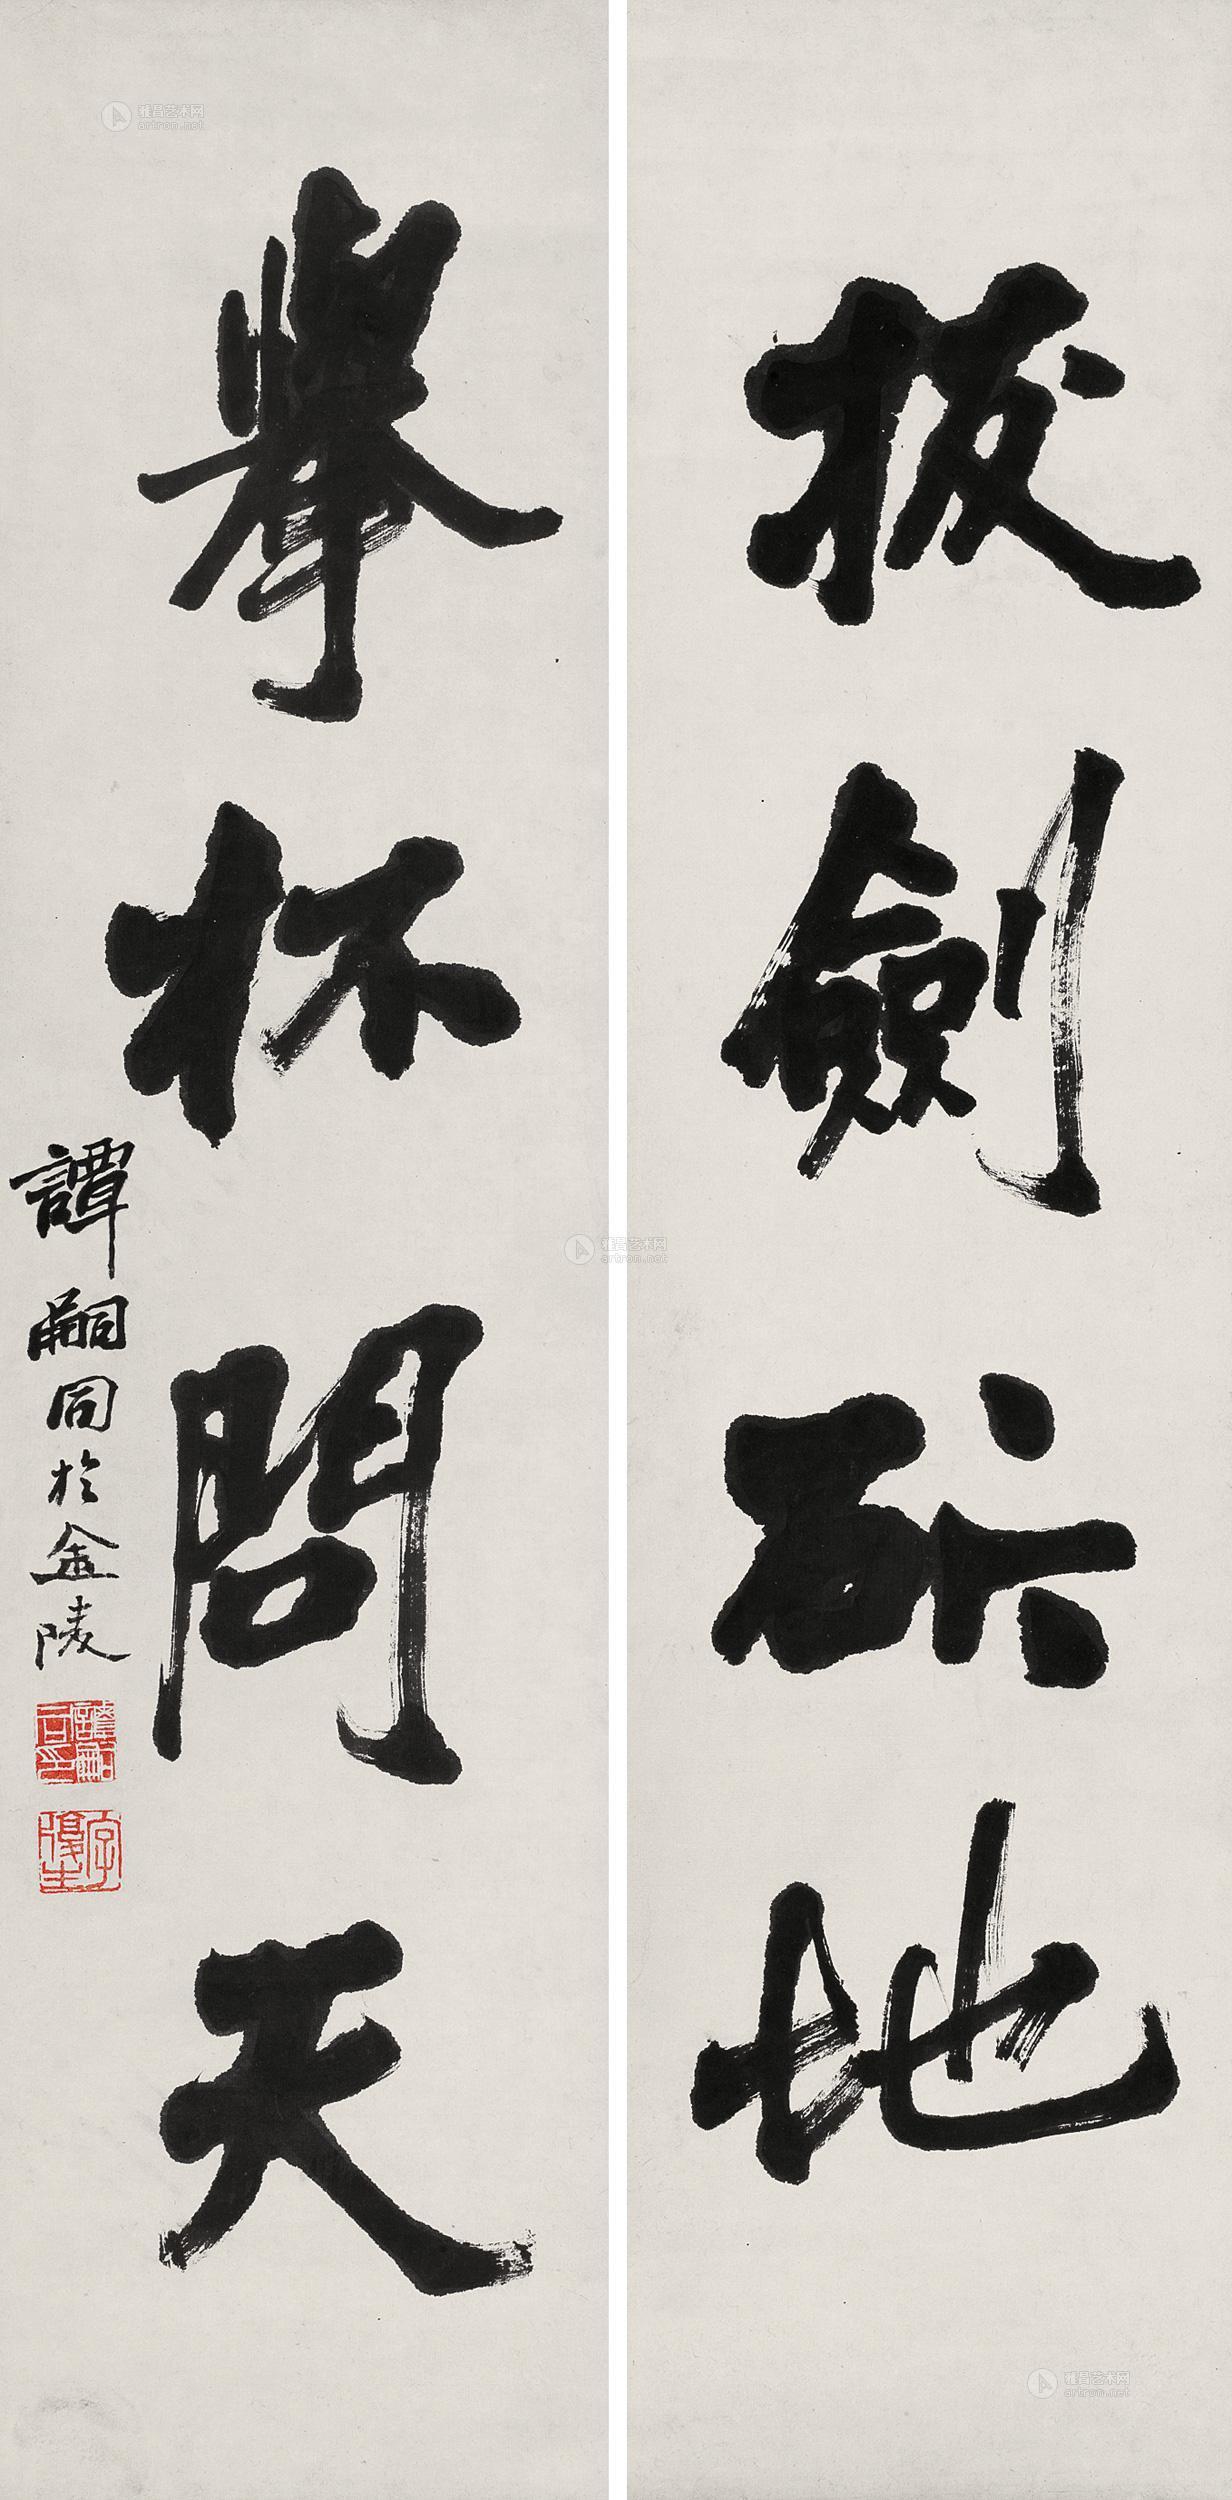 拔劍斫地
舉杯問天
譚嗣同於金陵
譚嗣同印
字復生
雅昌艺术网
artron.net
雅昌艺术网
artron.net
雅昌艺术网
artron.net